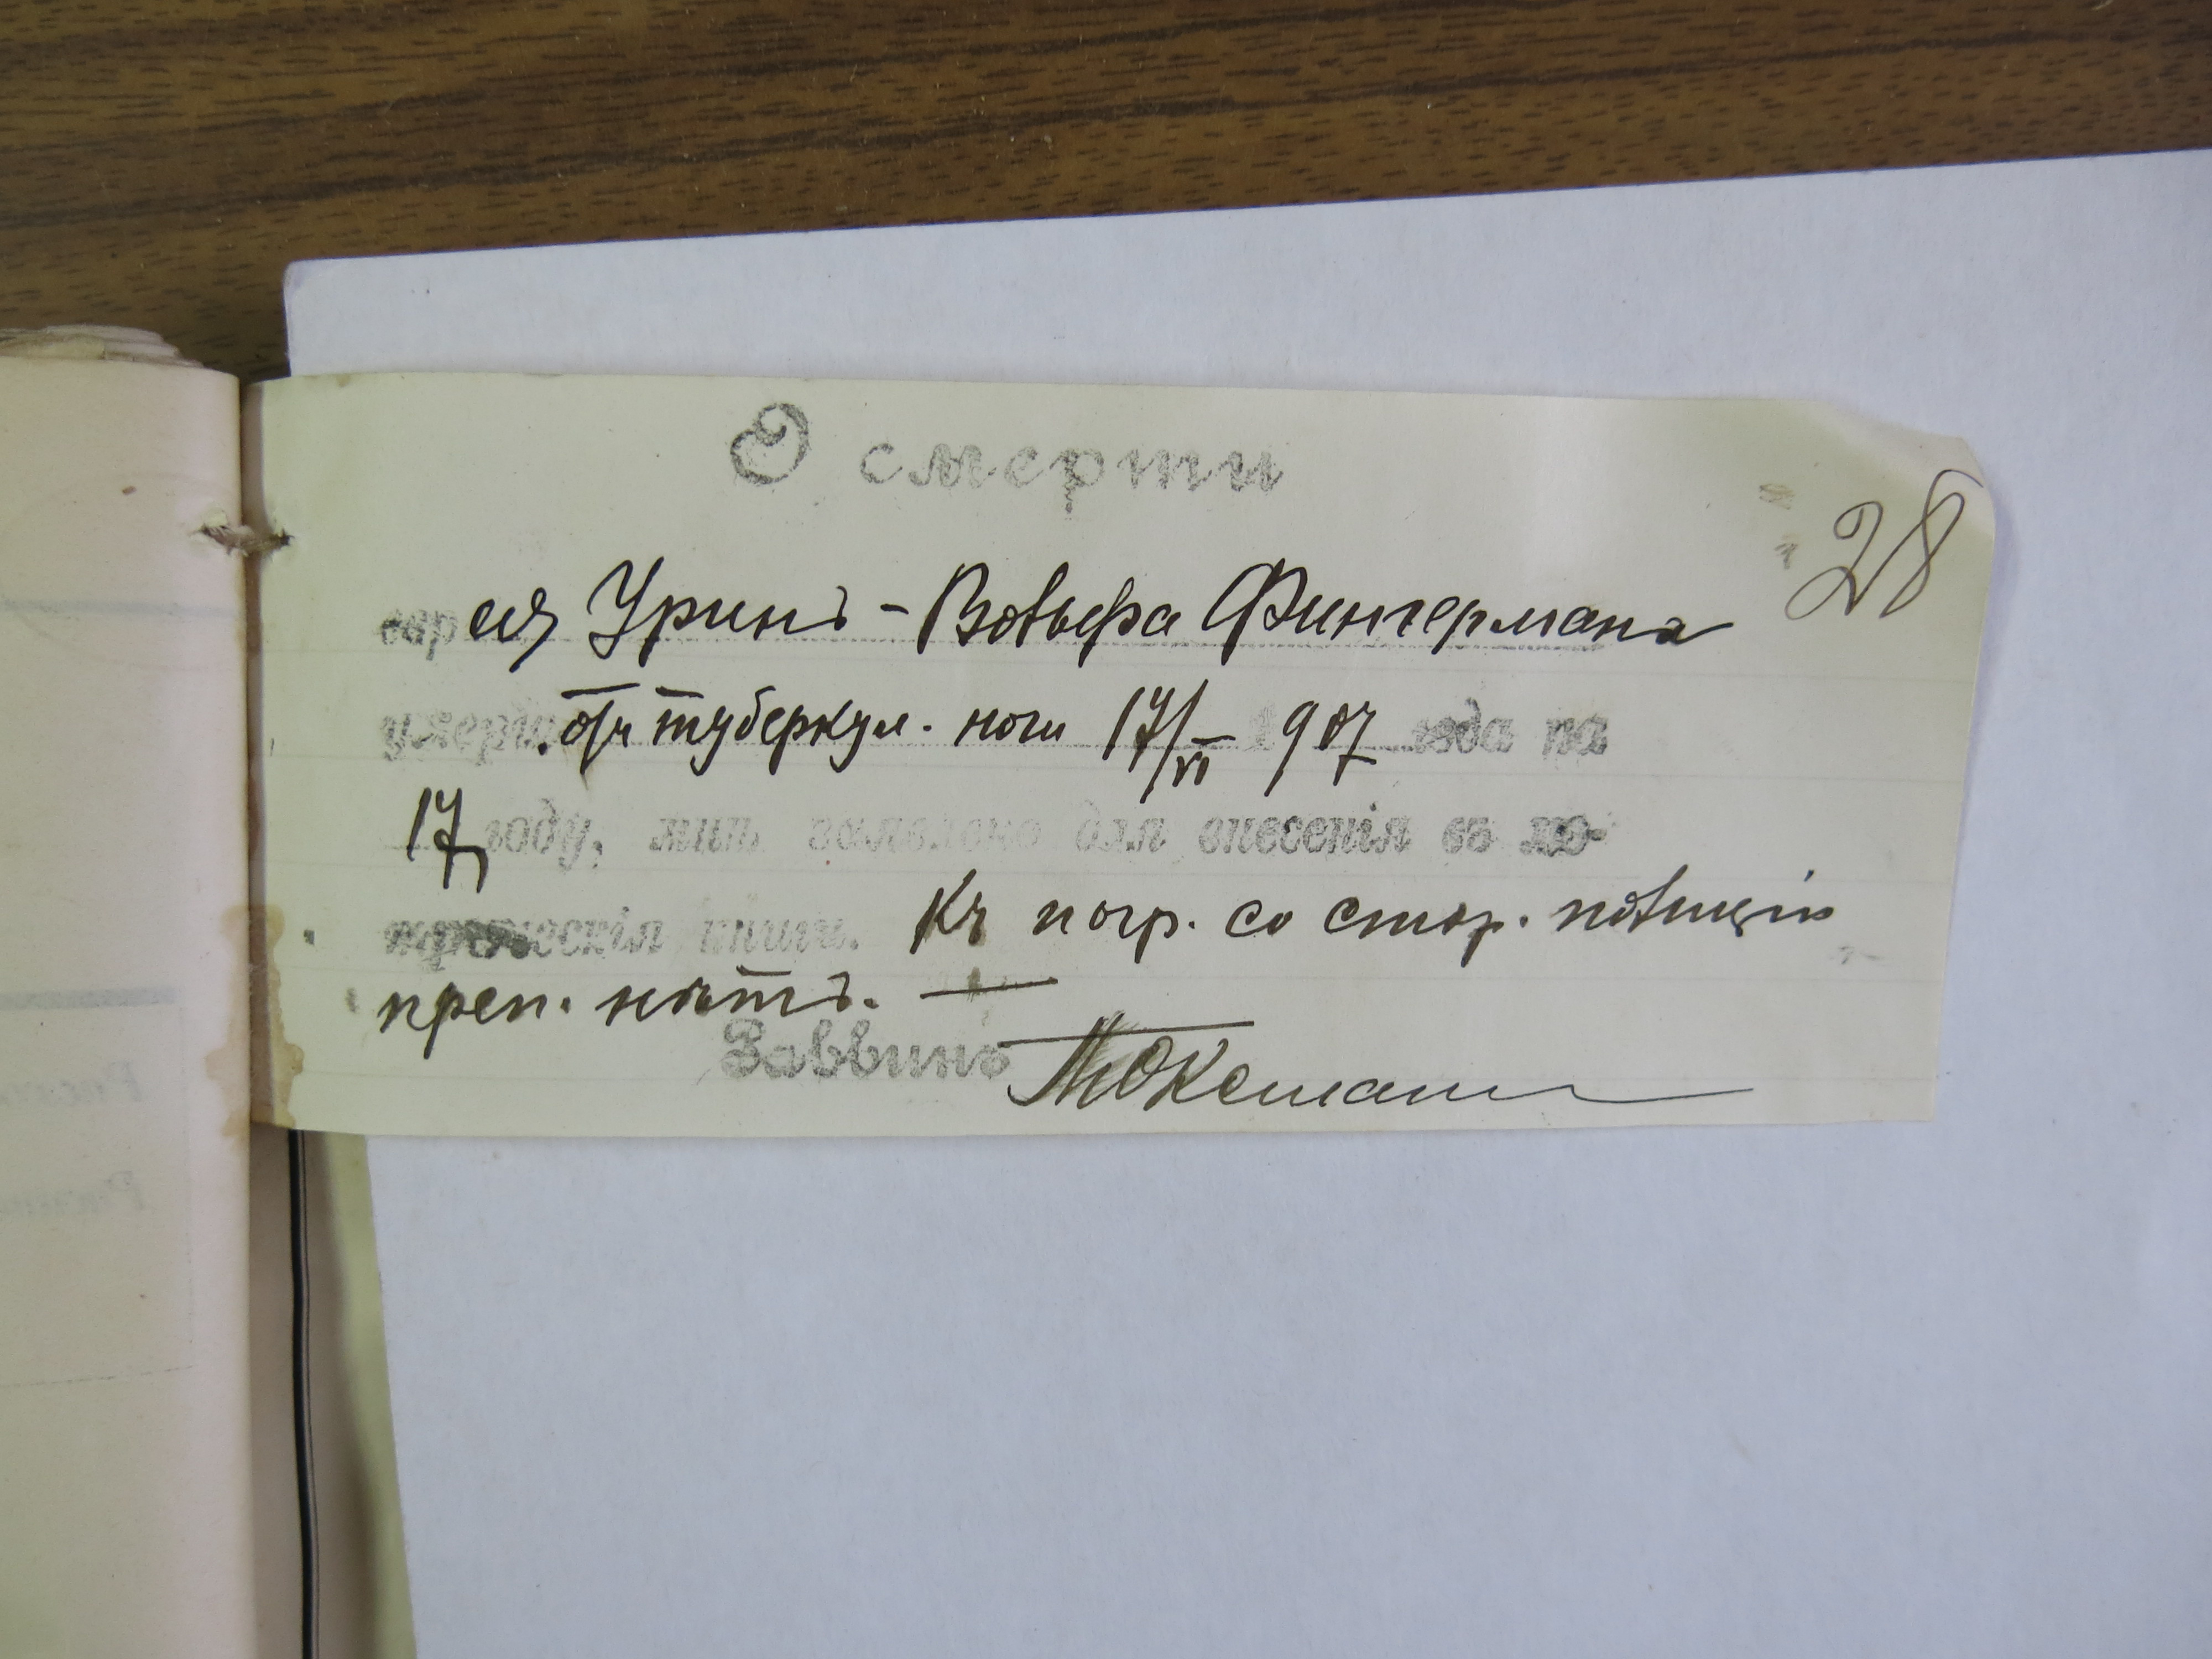 О смерти
28
евр ея Уринъ - Вовьфа Фингермана
умерш. отъ туберкул. ноги 17/VI 1907 года на
17 году, мнѣ заявлено для внесенія въ ме-
трическія книги. Къ погр. со стор. полиціи
преп. нѣтъ. —
Раввинъ